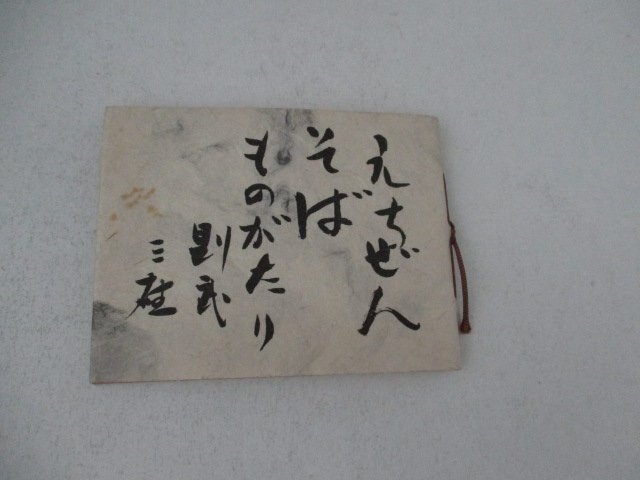 えちぜん
そば
ものがたり
則武
三雄